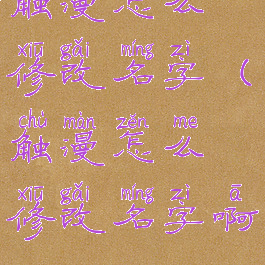 触漫怎么
xiū gǎi míng zì
修改名字（
chù màn zěn me
触漫怎么
xiū gǎi míng zì ā
修改名字啊